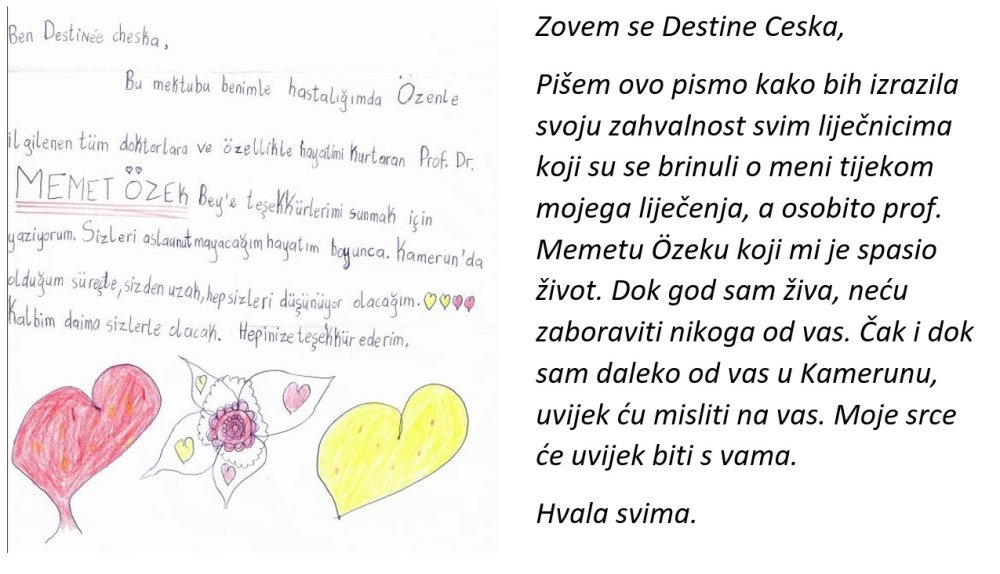 Ben Destinée cheska,
Bu mektubu benimle hastalığımda Özenle
ilgilenen tüm doktorlara ve özellikle hayatimi kurtaran Prof. Dr.
MEMET ÖZEK Bey'e teşekkürlerimi sunmak için
yaziyorum. Sizleri aslaunutmayacağım hayatım boyunca. Kamerun'da
olduğum süreşte, sizden uzak, hep sizleri düşünüyor olacağım.
Kalbim daima sizlerle olacak. Hepinize teşekkür ederim.
Zovem se Destine Ceska,
Pišem ovo pismo kako bih izrazila
svoju zahvalnost svim liječnicima
koji su se brinuli o meni tijekom
mojega liječenja, a osobito prof.
Memetu Özeku koji mi je spasio
život. Dok god sam živa, neću
zaboraviti nikoga od vas. Čak i dok
sam daleko od vas u Kamerunu,
uvijek ću misliti na vas. Moje srce
će uvijek biti s vama.
Hvala svima.